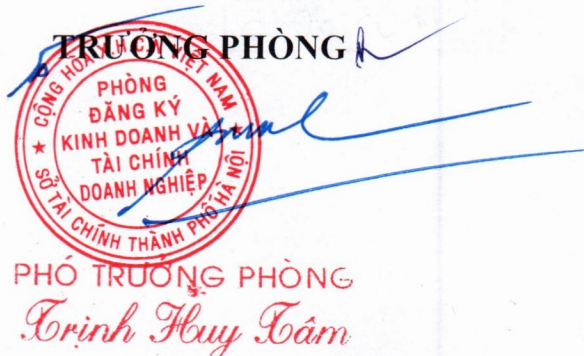 TRƯỞNG PHÒNG
CỘNG HOÀ X.H.C.N VIỆT NAM
PHÒNG
ĐĂNG KÝ
KINH DOANH VÀ
TÀI CHÍNH
DOANH NGHIỆP
SỞ TÀI CHÍNH THÀNH PHỐ HÀ NỘI
PHÓ TRƯỞNG PHÒNG
Trịnh Huy Tâm